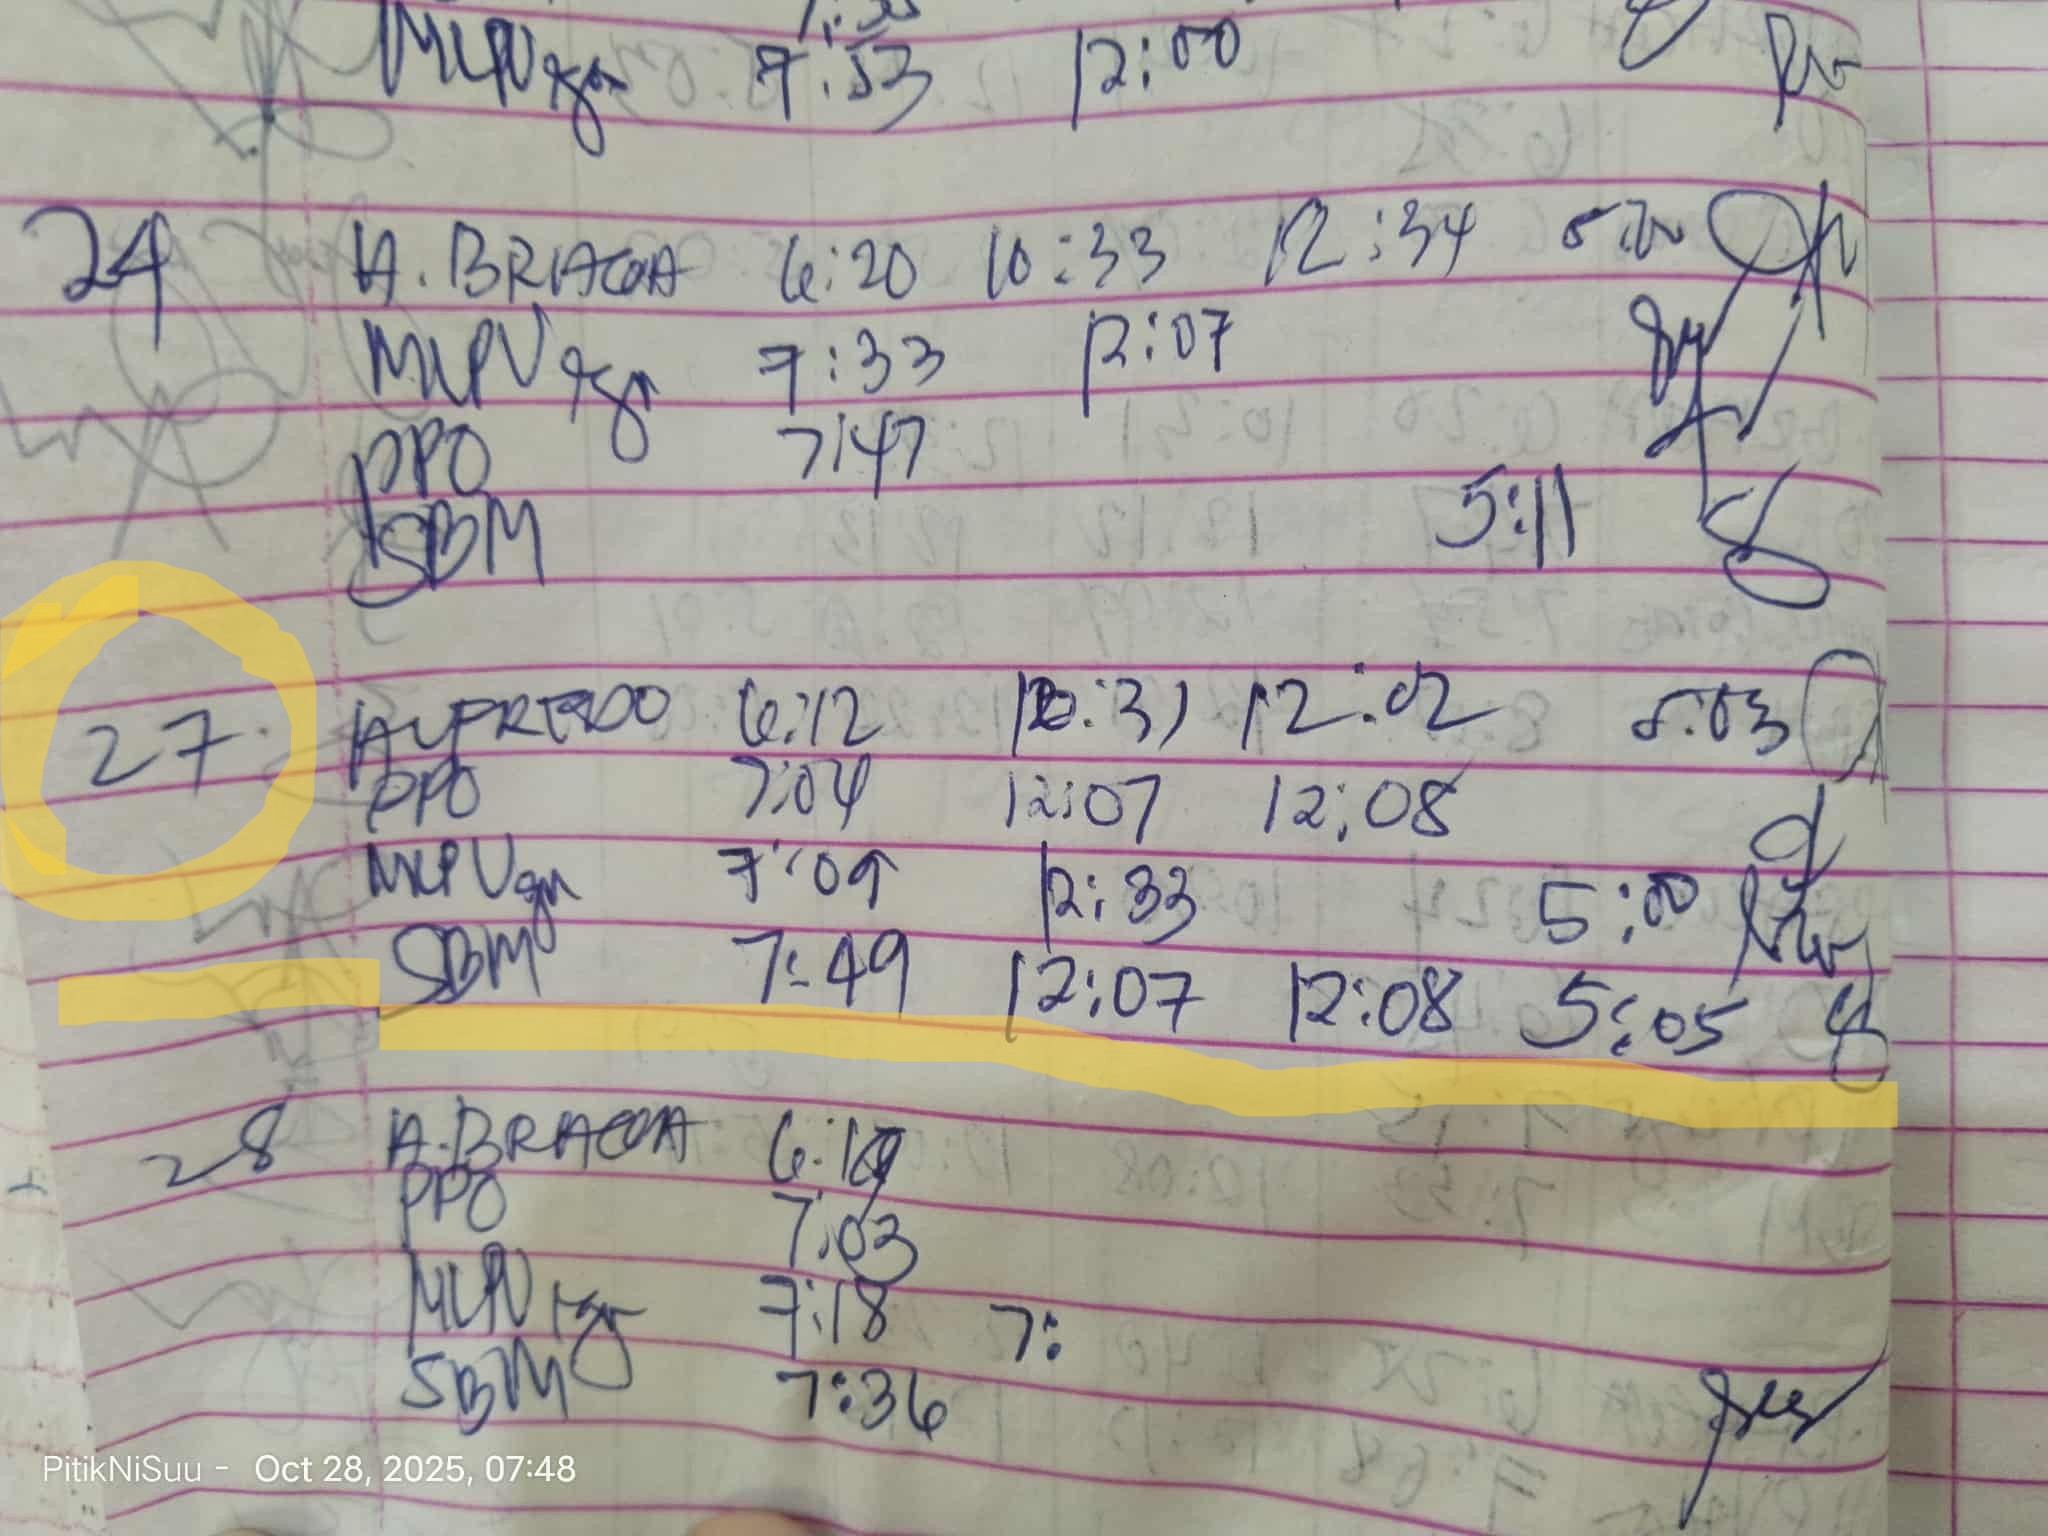 7:53 12:00
24 A. BRACOA 6:20 10:33 12:34 5:00
MLPV 7:33 12:07
PPO 7:47
SBM 5:11
27 ALFREDO 6:12 10:31 12:02 5:03
PPO 7:04 12:07 12:08
MLPV 7:09 12:33 5:00
SBM 7:49 12:07 12:08 5:05
28 A. BRACOA 6:19
PPO 7:03
MLPV 7:18 7:
SBM 7:36
PitikNiSuu - Oct 28, 2025, 07:48